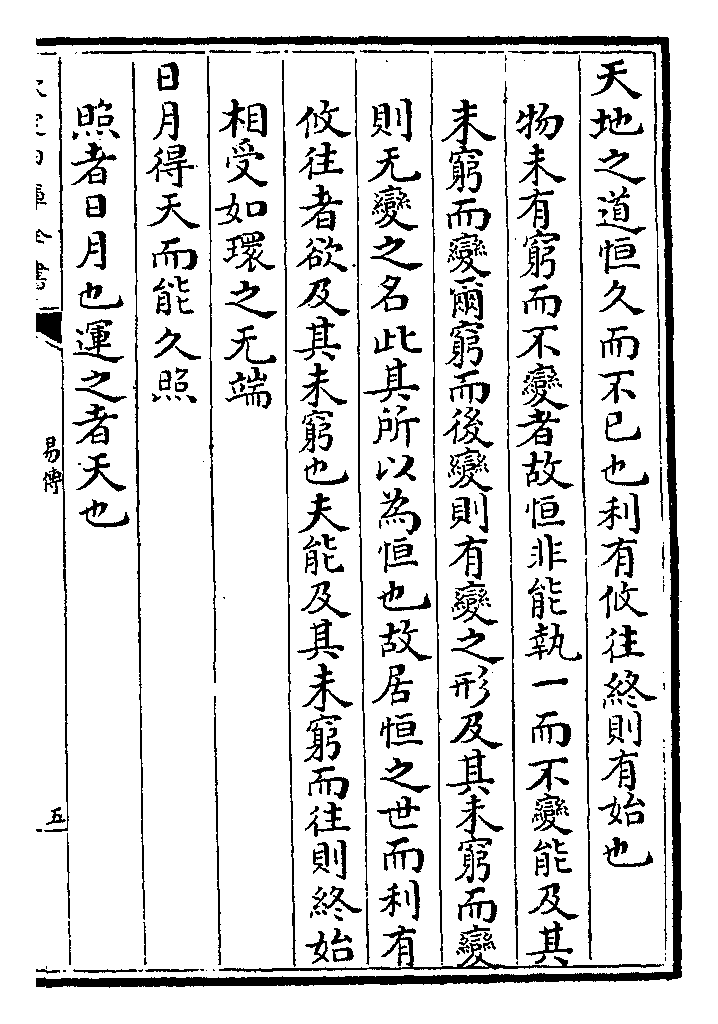 天地之道恒久而不已也利有攸往終則有始也
物未有窮而不變者故恒非能執一而不變能及其
未窮而變爾窮而後變則有變之形及其未窮而變
則无變之名此其所以為恒也故居恒之世而利有
攸往者欲及其未窮也夫能及其未窮而往則終始
相受如環之无端
日月得天而能久照
照者日月也運之者天也
易傳
五